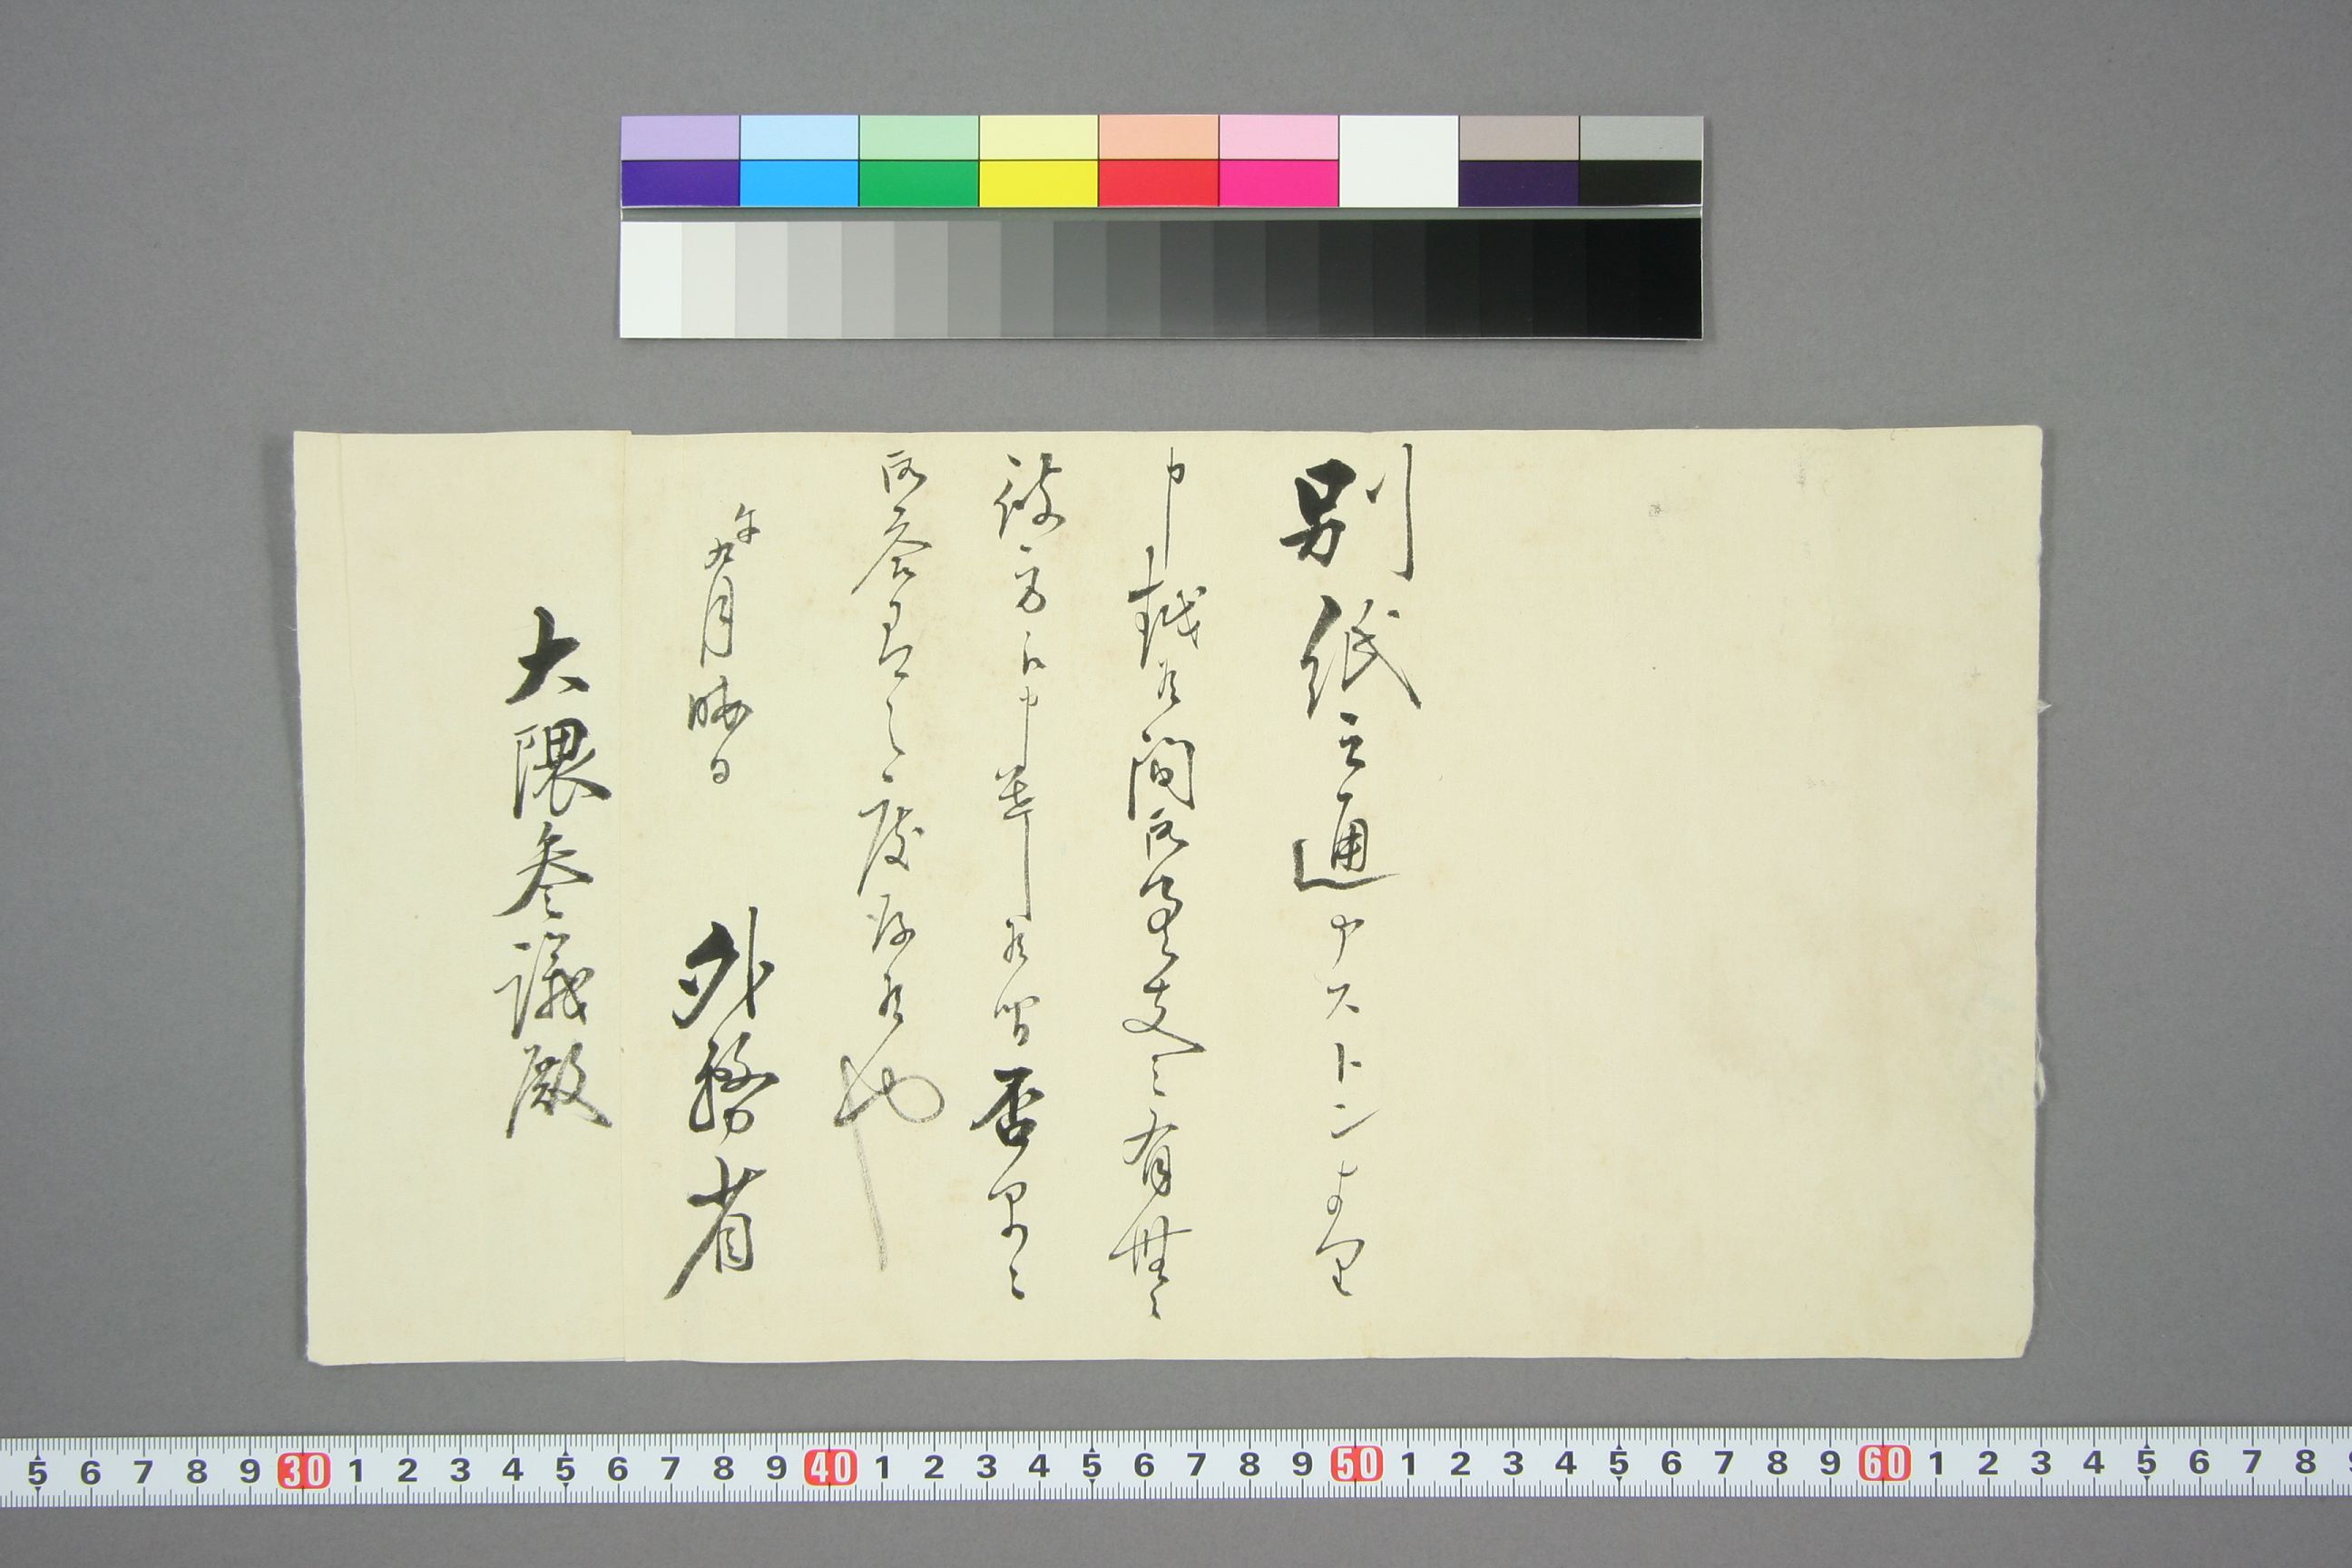 別紙之通ヤストンより
申越候間御差支之有無
彼方申候否早々
御答有之度存候也
午九月晦日 外務省
大隈参議殿
5 6 7 8 9 30 1 2 3 4 5 6 7 8 9 40 1 2 3 4 5 6 7 8 9 50 1 2 3 4 5 6 7 8 9 60 1 2 3 4 5 6 7 8